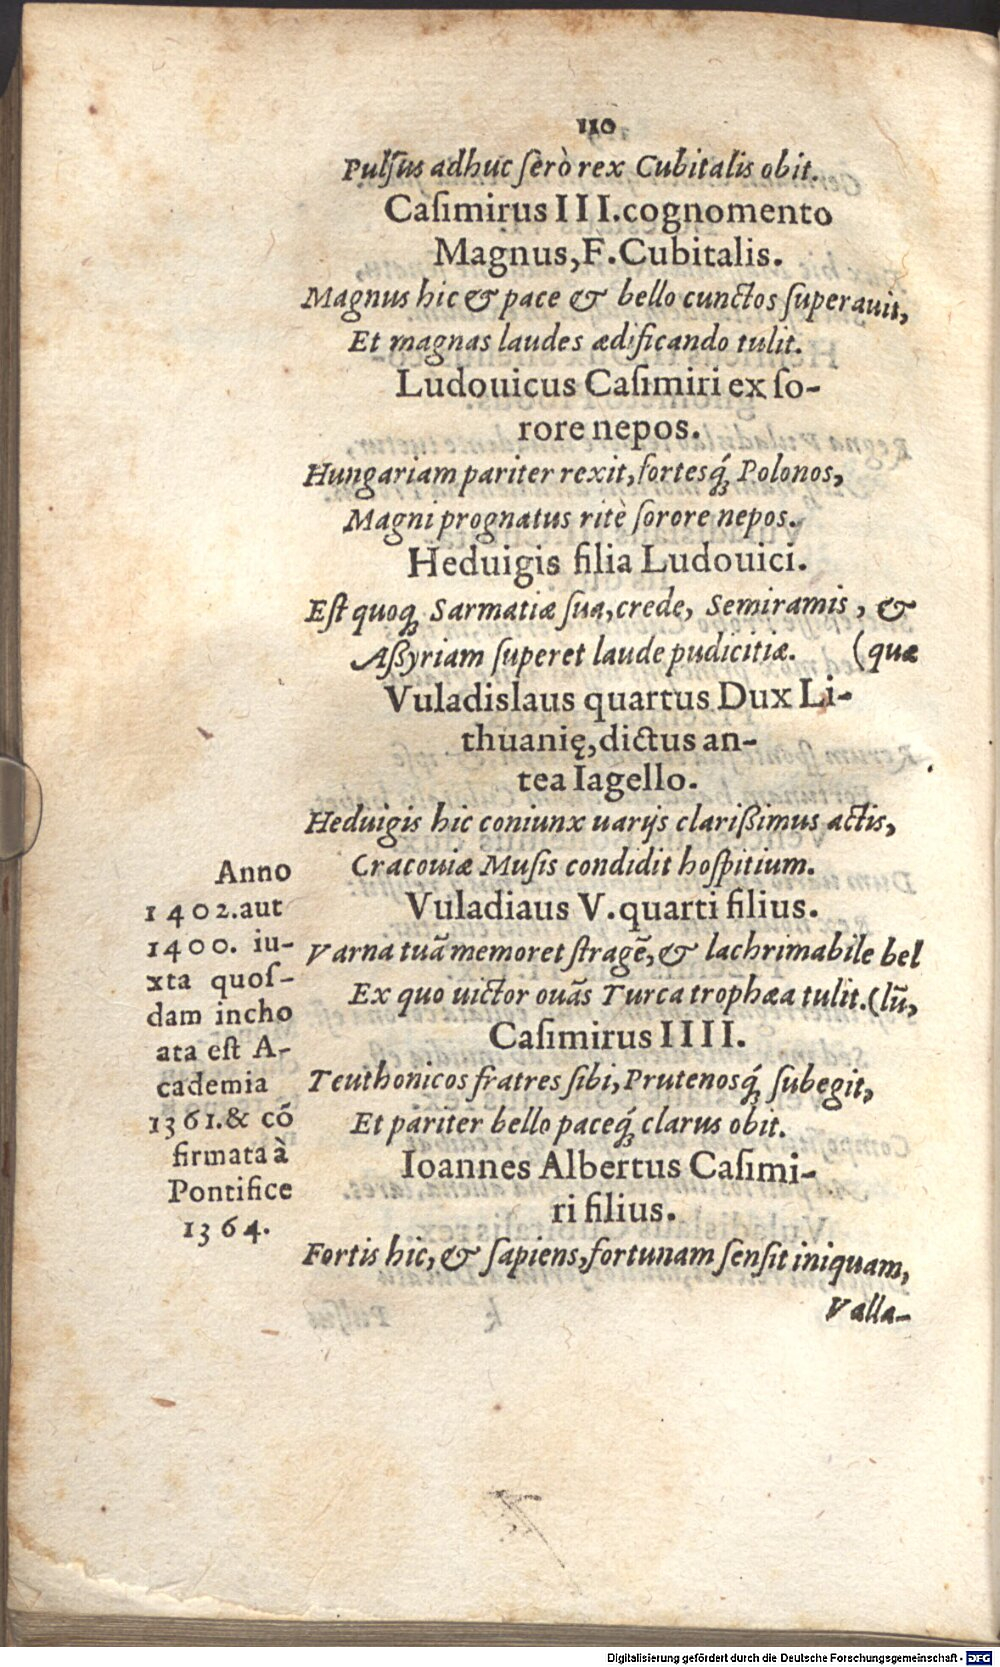 110
Pulſus adhuc ſerò rex Cubitalis obit.
Caſimirus III. cognomento
Magnus, F. Cubitalis.
Magnus hic & pace & bello cunctos ſuperauit,
Et magnas laudes ædificando tulit.
Ludouicus Caſimiri ex ſo-
rore nepos.
Hungariam pariter rexit, fortesq́; Polonos,
Magni prognatus ritè ſorore nepos.
Heduigis filia Ludouici.
Eſt quoq; Sarmatiæ ſua, crede, Semiramis, &
Aßyriam ſuperet laude pudicitiæ. (quæ
Vuladislaus quartus Dux Li-
thuanię, dictus an-
tea Iagello.
Heduigis hic coniunx uarijs clarißimus actis,
Cracouiæ Muſis condidit hoſpitium.
Vuladiaus V. quarti filius.
Varna tuā memoret ſtragē, & lachrimabile bel
Ex quo uictor ouās Turca trophæa tulit. (lū,
Caſimirus IIII.
Teuthonicos fratres ſibi, Prutenosq́; ſubegit,
Et pariter bello paceq́; clarus obit.
Ioannes Albertus Caſimi-
ri filius.
Fortis hic, & ſapiens, fortunam ſenſit iniquam,
Valla-
Anno
1402. aut
1400. iu-
xta quoſ-
dam incho
ata eſt A-
cademia
1361. & cō
firmata à
Pontifice
1364.
Digitalisierung gefördert durch die Deutsche Forschungsgemeinschaft - DFG